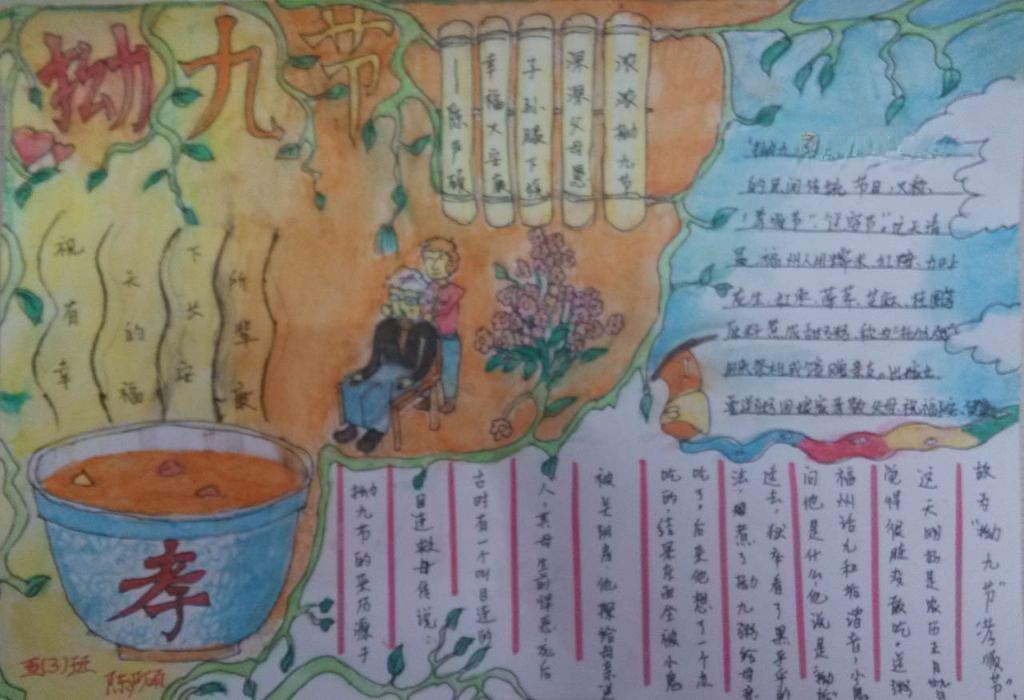 拗九节
浓浓拗九节
深深父母恩
子孙膝下绕
幸福大安康
祝有幸
天的福
下长安
所辈康
孝
的民间传统节日,又称
"孝顺节"
晨,福州人用糯米、红糖,加上
花生、红枣、荸荠、芝麻、桂圆等
原料煮成甜粥,称为"拗九粥"
用来祭祖或馈赠亲友。出嫁女
拗九节的来历源于
目连救母传说:
古时有一个叫目连的
人,其母生前悭恶,死后
被关阴房,他探给母亲送
吃的,结果东西全被小鬼
吃了,后来他想了一个点
法,煮了拗九粥给母亲
过去,狱卒看了黑乎乎的
问他是什么,他说是拗
福州话九和垢谐音,小鬼
觉得很脏没敢吃,送粥
这天刚好是农历正月
故为"拗九节""孝顺节"
五(3)班